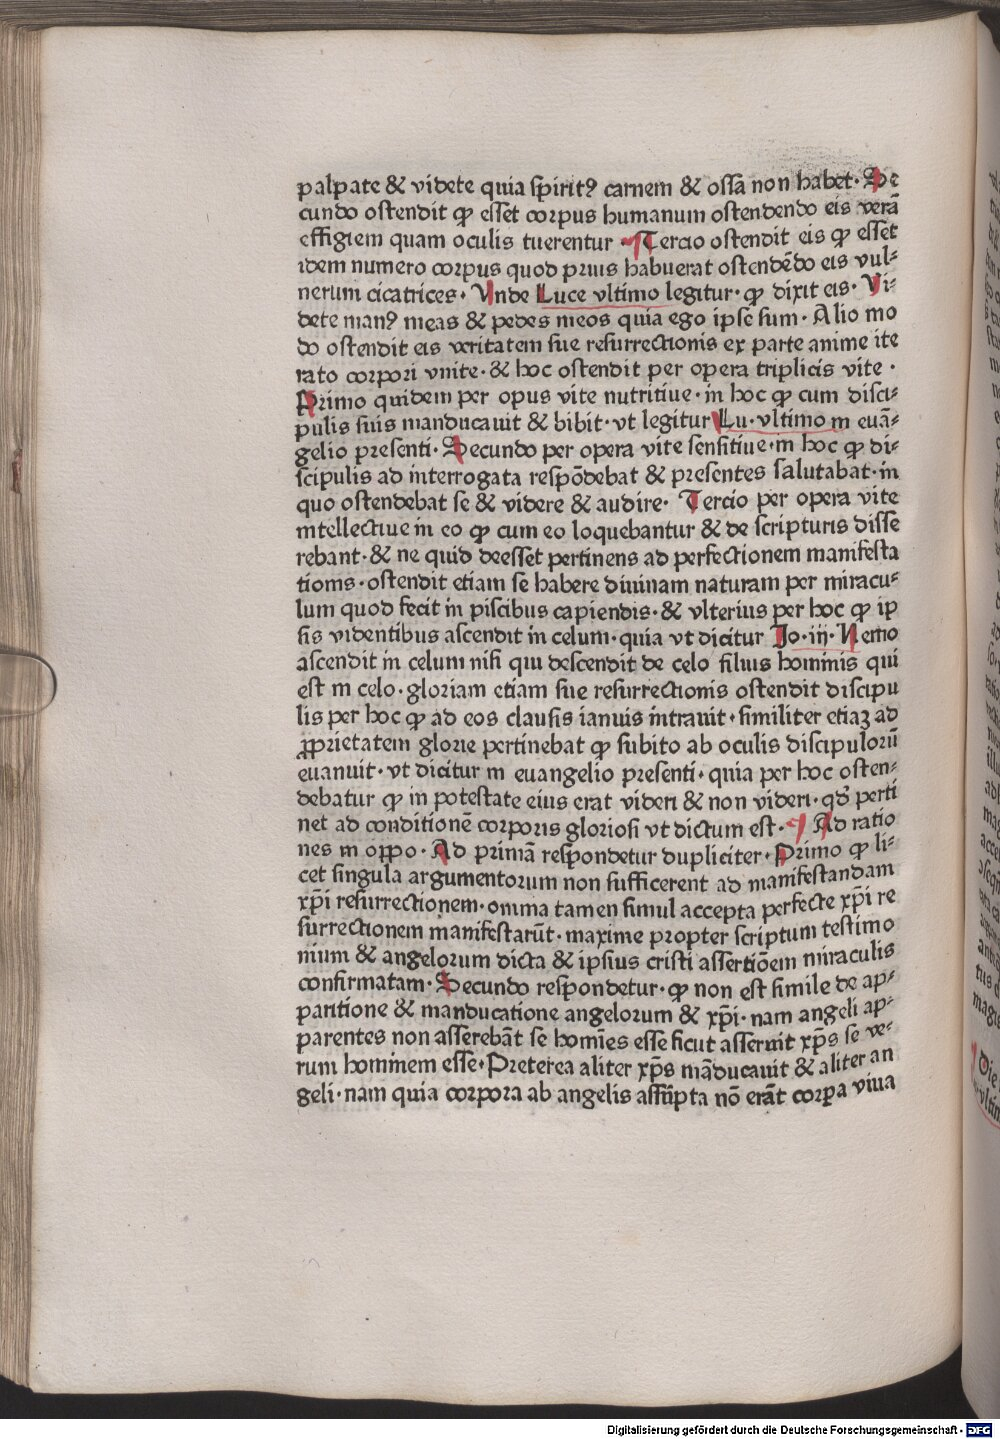 palpate & videte quia spiritꝰ carnem & ossa non habet· Se
cundo ostendit ꝙ esset corpus humanum ostendendo eis verā
effigiem quam oculis tuerentur ¶ Tercio ostendit eis ꝙ esset
idem numero corpus quod prius habuerat ostendēdo eis vul⸗
nerum cicatrices· Vnde Luce vltimo legitur· ꝙ dixit eis· Vi⸗
dete manꝰ meas & pedes meos quia ego ipse sum· Alio mo
do ostendit eis veritatem sue resurrectionis ex parte anime ite
rato corpori vnite· & hoc ostendit per opera triplicis vite ·
Primo quidem per opus vite nutritiue· in hoc ꝙ cum disci⸗
pulis suis manducauit & bibit· vt legitur Lu· vltimo in euā⸗
gelio presenti· Secundo per opera vite sensitiue· in hoc ꝙ di⸗
scipulis ad interrogata respōdebat & presentes salutabat· in
quo ostendebat se & videre & audire· Tercio per opera vite
intellectiue in eo ꝙ cum eo loquebantur & de scripturis disse
rebant· & ne quid deesset pertinens ad perfectionem manifesta
tionis· ostendit etiam se habere diuinam naturam per miracu⸗
lum quod fecit in piscibus capiendis· & vlterius per hoc ꝙ ip
sis videntibus ascendit in celum· quia vt dicitur Jo· iij· Nemo
ascendit in celum nisi qui descendit de celo filius hominis qui
est in celo· gloriam etiam sue resurrectionis ostendit discipu
lis per hoc ꝙ ad eos clausis ianuis intrauit· similiter etiaꝫ ad
ꝓprietatem glorie pertinebat ꝙ subito ab oculis discipulorū
euanuit· vt dicitur in euangelio presenti· quia per hoc osten⸗
debatur ꝙ in potestate eius erat videri & non videri· qđ perti
net ad conditionē corporis gloriosi vt dictum est· ¶ Ad ratio
nes in oppo· Ad primā respondetur dupliciter· Primo ꝙ li⸗
cet singula argumentorum non sufficerent ad manifestandam
xp̄i resurrectionem· omnia tamen simul accepta perfecte xp̄i re
surrectionem manifestarūt· maxime propter scriptum testimo
nium & angelorum dicta & ipsius cristi assertiōem miraculis
confirmatam· Secundo respondetur· ꝙ non est simile de ap⸗
paritione & manducatione angelorum & xp̄i· nam angeli ap⸗
parentes non asserebāt se homīes esse sicut asseruit xp̄s se ve⸗
rum hominem esse· Preterea aliter xp̄s māducauit & aliter an
geli· nam quia corpora ab angelis assūpta nō erāt corꝑa viua
Digitalisierung gefördert durch die Deutsche Forschungsgemeinschaft - DFG